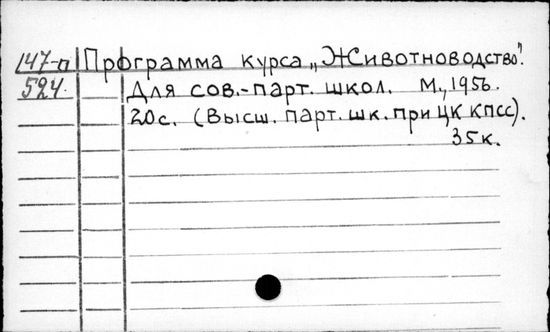 147-п Программа курса „Животноводство".
524. Для сов.-парт. школ. М., 1956.
20с. (Высш. парт. шк. при ЦК КПСС).
35к.